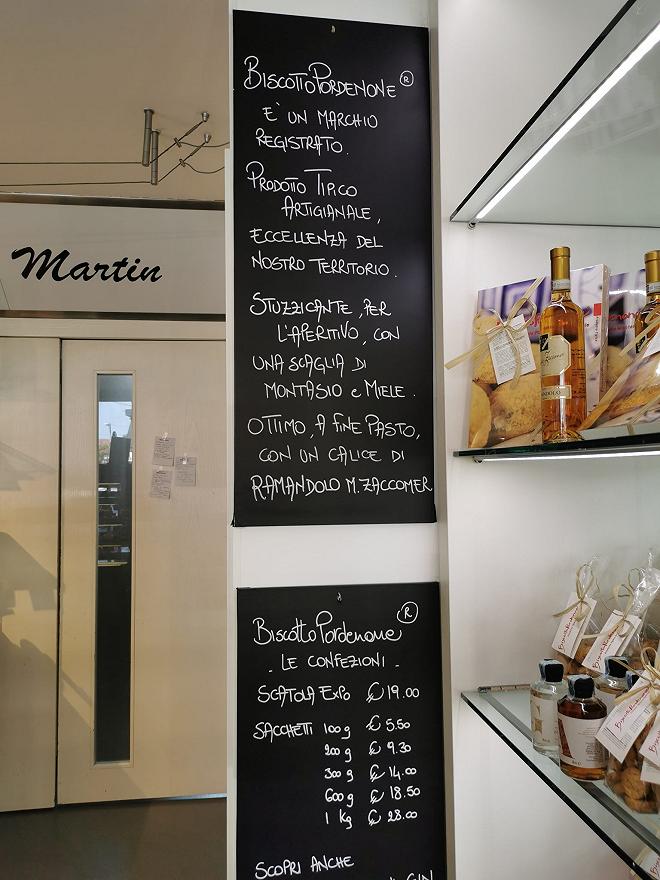 BISCOTTOPORDENONE ®
E' UN MARCHIO
REGISTRATO.
PRODOTTO TIPICO
ARTIGIANALE,
ECCELLENZA DEL
NOSTRO TERRITORIO.
STUZZICANTE, PER
L'APERITIVO, CON
UNA SCAGLIA DI
MONTASIO e MIELE.
OTTIMO, A FINE PASTO,
CON UN CALICE DI
RAMANDOLO M. ZACCOMER
Martin
BiscottoPordenone ®
- LE CONFEZIONI -
SCATOLA EXPO € 19.00
SACCHETTI 100g € 5.50
200 g € 9.30
300 g € 14.00
600 g € 18.50
1 kg € 28.00
SCOPRI ANCHE
GIN